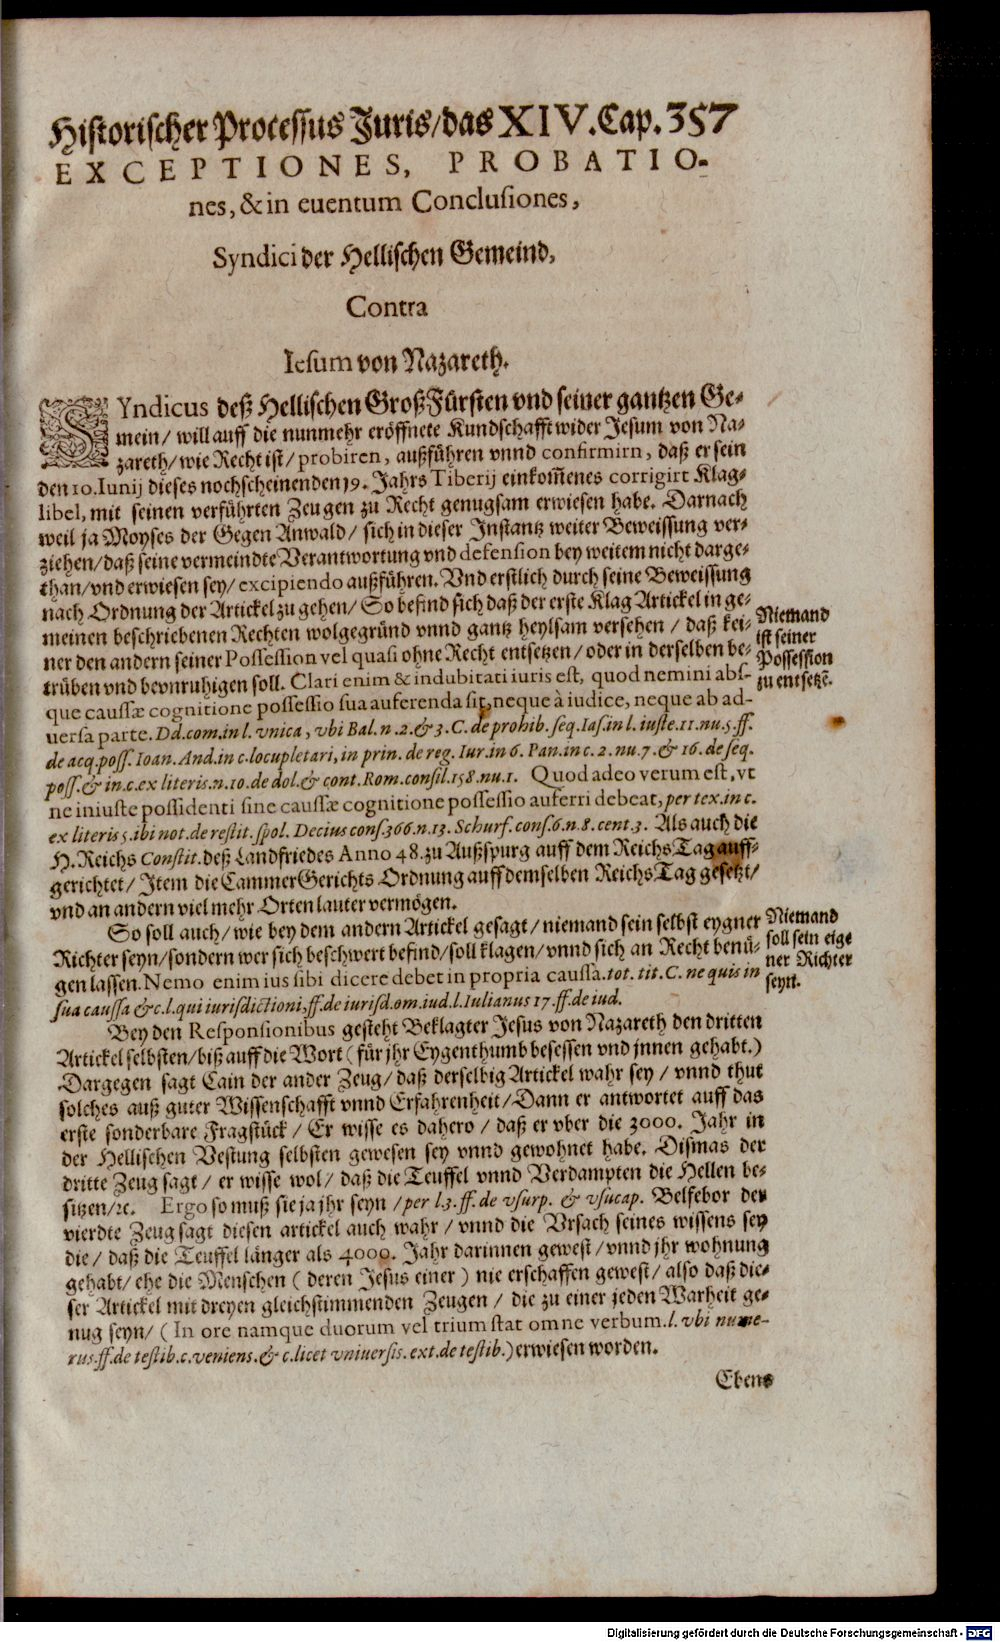 Historischer Processus Juris/das XIV. Cap. 357
EXCEPTIONES, PROBATIO-
nes, & in euentum Conclusiones,
Syndici der Hellischen Gemeind,
Contra
Iesum von Nazareth.
SYndicus deß Hellischen GroßFürsten vnd seiner gantzen Ge-
mein/ will auff die nunmehr eröffnete Kundschafft wider Jesum von Na-
zareth/ wie Recht ist/ probiren, außführen vnnd confirmirn, daß er sein
den 10. Iunij dieses nochscheinenden 19. Jahrs Tiberij einkom̃enes corrigirt Klag-
libel, mit seinen verführten Zeugen zu Recht genugsam erwiesen habe. Darnach
weil ja Moyses der Gegen Anwald/ sich in dieser Instantz weiter Beweissung ver-
ziehen/ daß seine vermeindte Verantwortung vnd defension bey weitem nicht darge-
than/ vnd erwiesen sey/ excipiendo außführen. Vnd erstlich durch seine Beweissung
nach Ordnung der Artickel zu gehen/ So befind sich daß der erste Klag Artickel in ge-
meinen beschriebenen Rechten wolgegründ vnnd gantz heylsam versehen / daß kei-
ner den andern seiner Possession vel quasi ohne Recht entsetzen/ oder in derselben be-
trüben vnd bevnruhigen soll. Clari enim & indubitati iuris est, quod nemini abs-
que caussæ cognitione possessio sua auferenda sit, neque à iudice, neque ab ad-
uersa parte. Dd. com. in l. vnica, vbi Bal. n. 2. & 3. C. de prohib. seq. Ias. in l. iuste. 11. nu. 5. ff.
de acq. poss. Ioan. And. in c. locupletari, in prin. de reg. Iur. in 6. Pan. in c. 2. nu. 7. & 16. de seq.
poss. & in c. ex literis. n. 10. de dol. & cont. Rom. consil. 158. nu. 1. Quod adeo verum est, vt
ne iniuste possidenti sine caussæ cognitione possessio auferri debeat, per tex. in c.
ex literis 5. ibi not. de restit. spol. Decius cons. 366. n. 13. Schurf. cons. 6. n. 8. cent. 3. Als auch die
H. Reichs Constit. deß Landfriedes Anno 48. zu Außspurg auff dem Reichs Tag auff-
gerichtet/ Item die CammerGerichts Ordnung auff demselben Reichs Tag gesetzt/
vnd an andern viel mehr Orten lauter vermögen.
So soll auch/ wie bey dem andern Artickel gesagt/ niemand sein selbst eygner
Richter seyn/ sondern wer sich beschwert befind/ soll klagen/ vnnd sich an Recht benü-
gen lassen. Nemo enim ius sibi dicere debet in propria caussa. tot. tit. C. ne quis in
sua caussa &c. l. qui iurisdictioni, ff. de iurisd. om. iud. l. Iulianus 17. ff. de iud.
Bey den Responsionibus gesteht Beklagter Jesus von Nazareth den dritten
Artickel selbsten/ biß auff die Wort (für jhr Eygenthumb besessen vnd jnnen gehabt.)
Dargegen sagt Cain der ander Zeug/ daß derselbig Artickel wahr sey / vnnd thut
solches auß guter Wissenschafft vnnd Erfahrenheit/ Dann er antwortet auff das
erste sonderbare Fragstück / Er wisse es dahero / daß er vber die 3000. Jahr in
der Hellischen Vestung selbsten gewesen sey vnnd gewohnet habe. Dismas der
dritte Zeug sagt / er wisse wol/ daß die Teuffel vnnd Verdampten die Hellen be-
sitzen/ꝛc. Ergo so muß sie ja jhr seyn / per l. 3. ff. de vsurp. & vsucap. Belfebor der
vierdte Zeug sagt diesen artickel auch wahr / vnnd die Vrsach seines wissens sey
die/ daß die Teuffel länger als 4000. Jahr darinnen gewest/ vnnd jhr wohnung
gehabt/ ehe die Menschen ( deren Jesus einer ) nie erschaffen gewest/ also daß die-
ser Artickel mit dreyen gleichstimmenden Zeugen / die zu einer jeden Warheit ge-
nug seyn/ ( In ore namque duorum vel trium stat omne verbum. l. vbi nume-
rus. ff. de testib. c. veniens. & c. licet vniuersis. ext. de testib.) erwiesen worden.
Ebens
Niemand
ist seiner
Possession
zu entsetzẽ.
Niemand
soll sein eige
ner Richter
seyn.
Digitalisierung gefördert durch die Deutsche Forschungsgemeinschaft - DFG